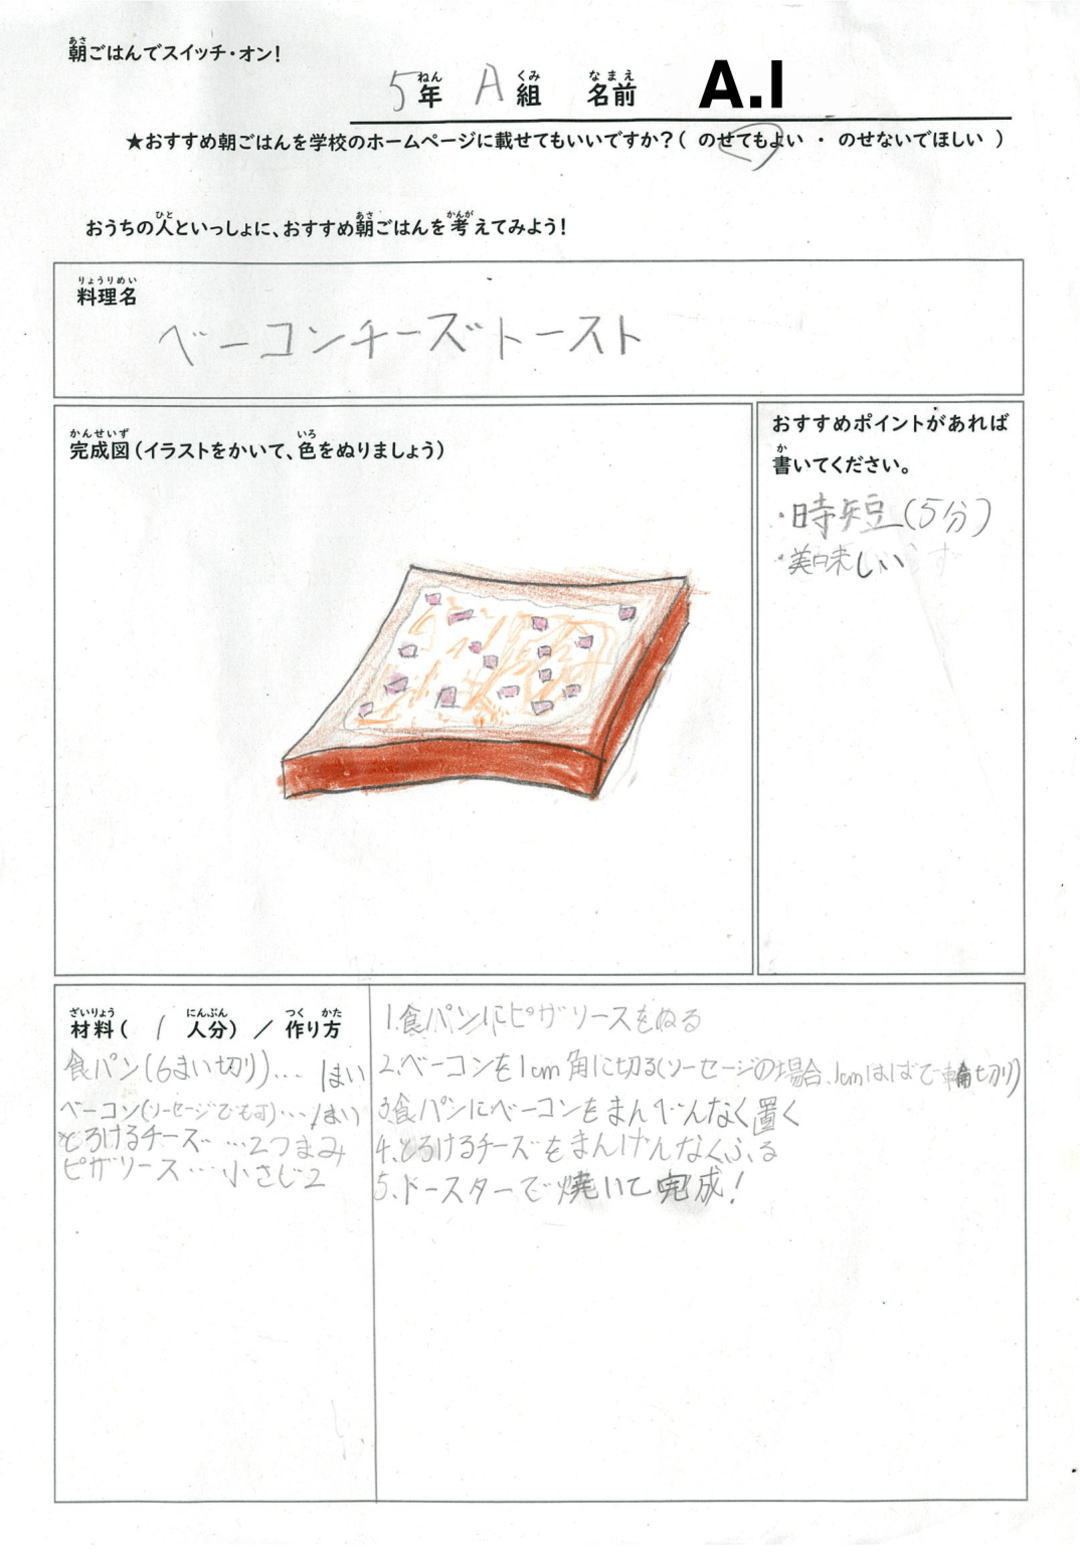 朝ごはんでスイッチ・オン!
5年 A組 名前 A.I
★おすすめ朝ごはんを学校のホームページに載せてもいいですか?( のせてもよい ・ のせないでほしい )
おうちの人といっしょに、おすすめ朝ごはんを考えてみよう!
料理名
ベーコンチーズトースト
完成図(イラストをかいて、色をぬりましょう)
おすすめポイントがあれば
書いてください。
・時短(5分)
・美味しい
材料( 1 人分) / 作り方
食パン(6まい切り)… 1まい
ベーコン(ソーセージでも可)…1まい
とろけるチーズ…2つまみ
ピザソース…小さじ2
1.食パンにピザソースをぬる
2.ベーコンを1cm角に切る(ソーセージの場合、1cmはばで輪切り)
3.食パンにベーコンをまんべんなく置く
4.とろけるチーズをまんべんなくふる
5.トースターで焼いて完成!